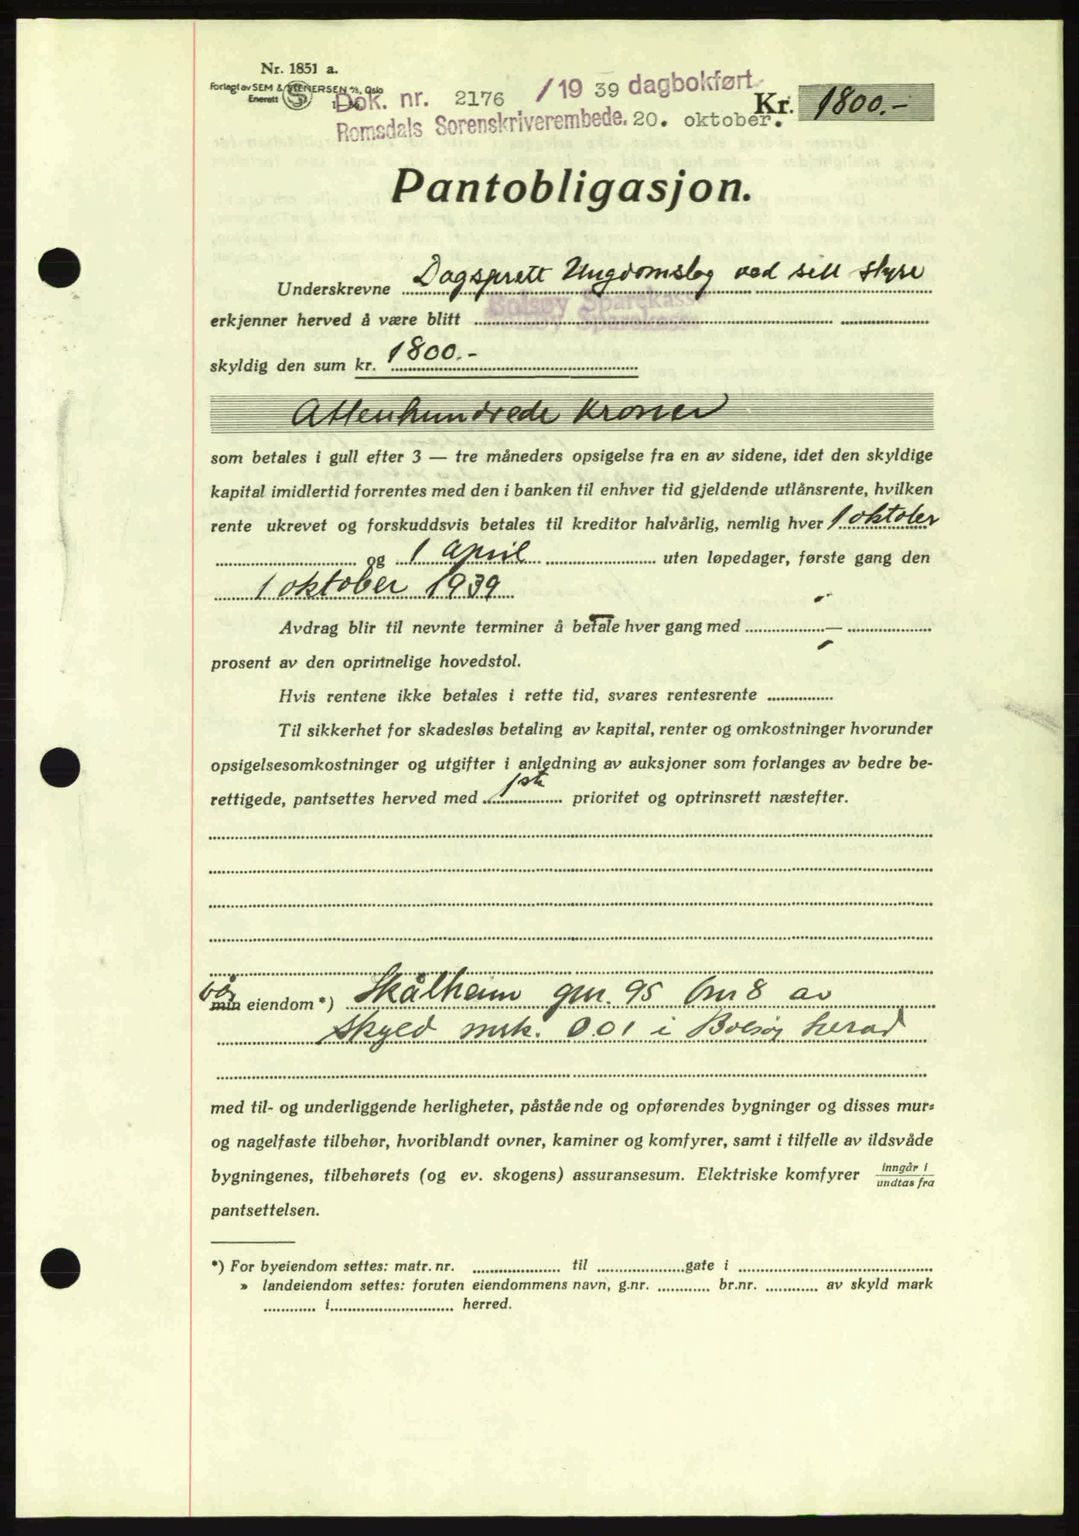 Nr. 1851 a.
Forlagt av SEM & STENERSEN A/S, Oslo
Enerett
Dok. nr. 2176 /19 39 dagbokført
Romsdals Sorenskriverembede. 20. oktober.
Kr. 1800.-
Pantobligasjon.
Underskrevne Dagsprett Ungdomslag ved sitt styre
Bolsøy Sparekasse
erkjenner herved å være blitt
skyldig den sum kr. 1800.-
Attenhundrede kroner
som betales i gull efter 3 — tre måneders opsigelse fra en av sidene, idet den skyldige
kapital imidlertid forrentes med den i banken til enhver tid gjeldende utlånsrente, hvilken
rente ukrevet og forskuddsvis betales til kreditor halvårlig, nemlig hver 1 oktober
og 1 April uten løpedager, første gang den
1 oktober 1939
Avdrag blir til nevnte terminer å betale hver gang med —
prosent av den oprinnelige hovedstol.
Hvis rentene ikke betales i rette tid, svares rentesrente
Til sikkerhet for skadesløs betaling av kapital, renter og omkostninger hvorunder
opsigelsesomkostninger og utgifter i anledning av auksjoner som forlanges av bedre be-
rettigede, pantsettes herved med 1ste prioritet og optrinsrett næstefter.
vår
min eiendom *) Skålheim gnr. 95 bnr 8 av
skyld mrk. 0.01 i Bolsøy herad
med til- og underliggende herligheter, påstående og opførendes bygninger og disses mur-
og nagelfaste tilbehør, hvoriblandt ovner, kaminer og komfyrer, samt i tilfelle av ildsvåde
bygningenes, tilbehørets (og ev. skogens) assuransesum. Elektriske komfyrer inngår i / undtas fra
pantsettelsen.
*) For byeiendom settes: matr. nr. til gate i
» landeiendom settes: foruten eiendommens navn, g.nr. br.nr. av skyld mark
i herred.